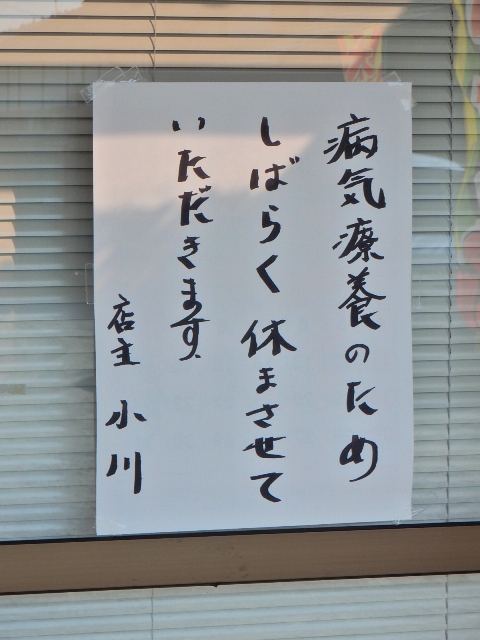 病気療養のため
しばらく休ませて
いただきます、
店主 小川